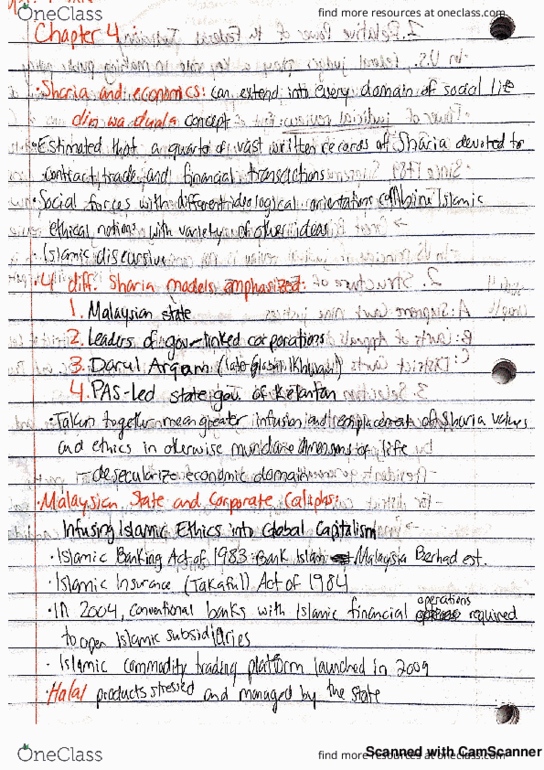 OneClass
find more resources at oneclass.com
Chapter 4
• Sharia and economics: can extend into every domain of social life
din wa duala concept
• Estimated that a quarter of vast written records of Sharia devoted to
contract, trade, and financial transactions
• Social forces with different ideological orientations combine Islamic
ethical notions with variety of other ideas
• Islamic discursive
• 4 diff. Sharia models emphasized:
1. Malaysian state
2. Leaders of gov-linked corporations
3. Darul Arqam (later Global Ikhwan)
4. PAS-led state gov of Kelantan
• Taken together mean greater infusion and emplacement of Sharia values
and ethics in otherwise mundane dimensions of life
desecularize economic domain
• Malaysian State and Corporate Caliphs:
Infusing Islamic Ethics into Global Capitalism
• Islamic Banking Act of 1983 Bank Islam Malaysia Berhad est.
• Islamic Insurance (Takaful) Act of 1984
• In 2004, conventional banks with Islamic financial operations required
to open Islamic subsidiaries
• Islamic commodity trading platform launched in 2009
• Halal products stressed and managed by the state
OneClass
find more resources at oneclass.com
Scanned with CamScanner